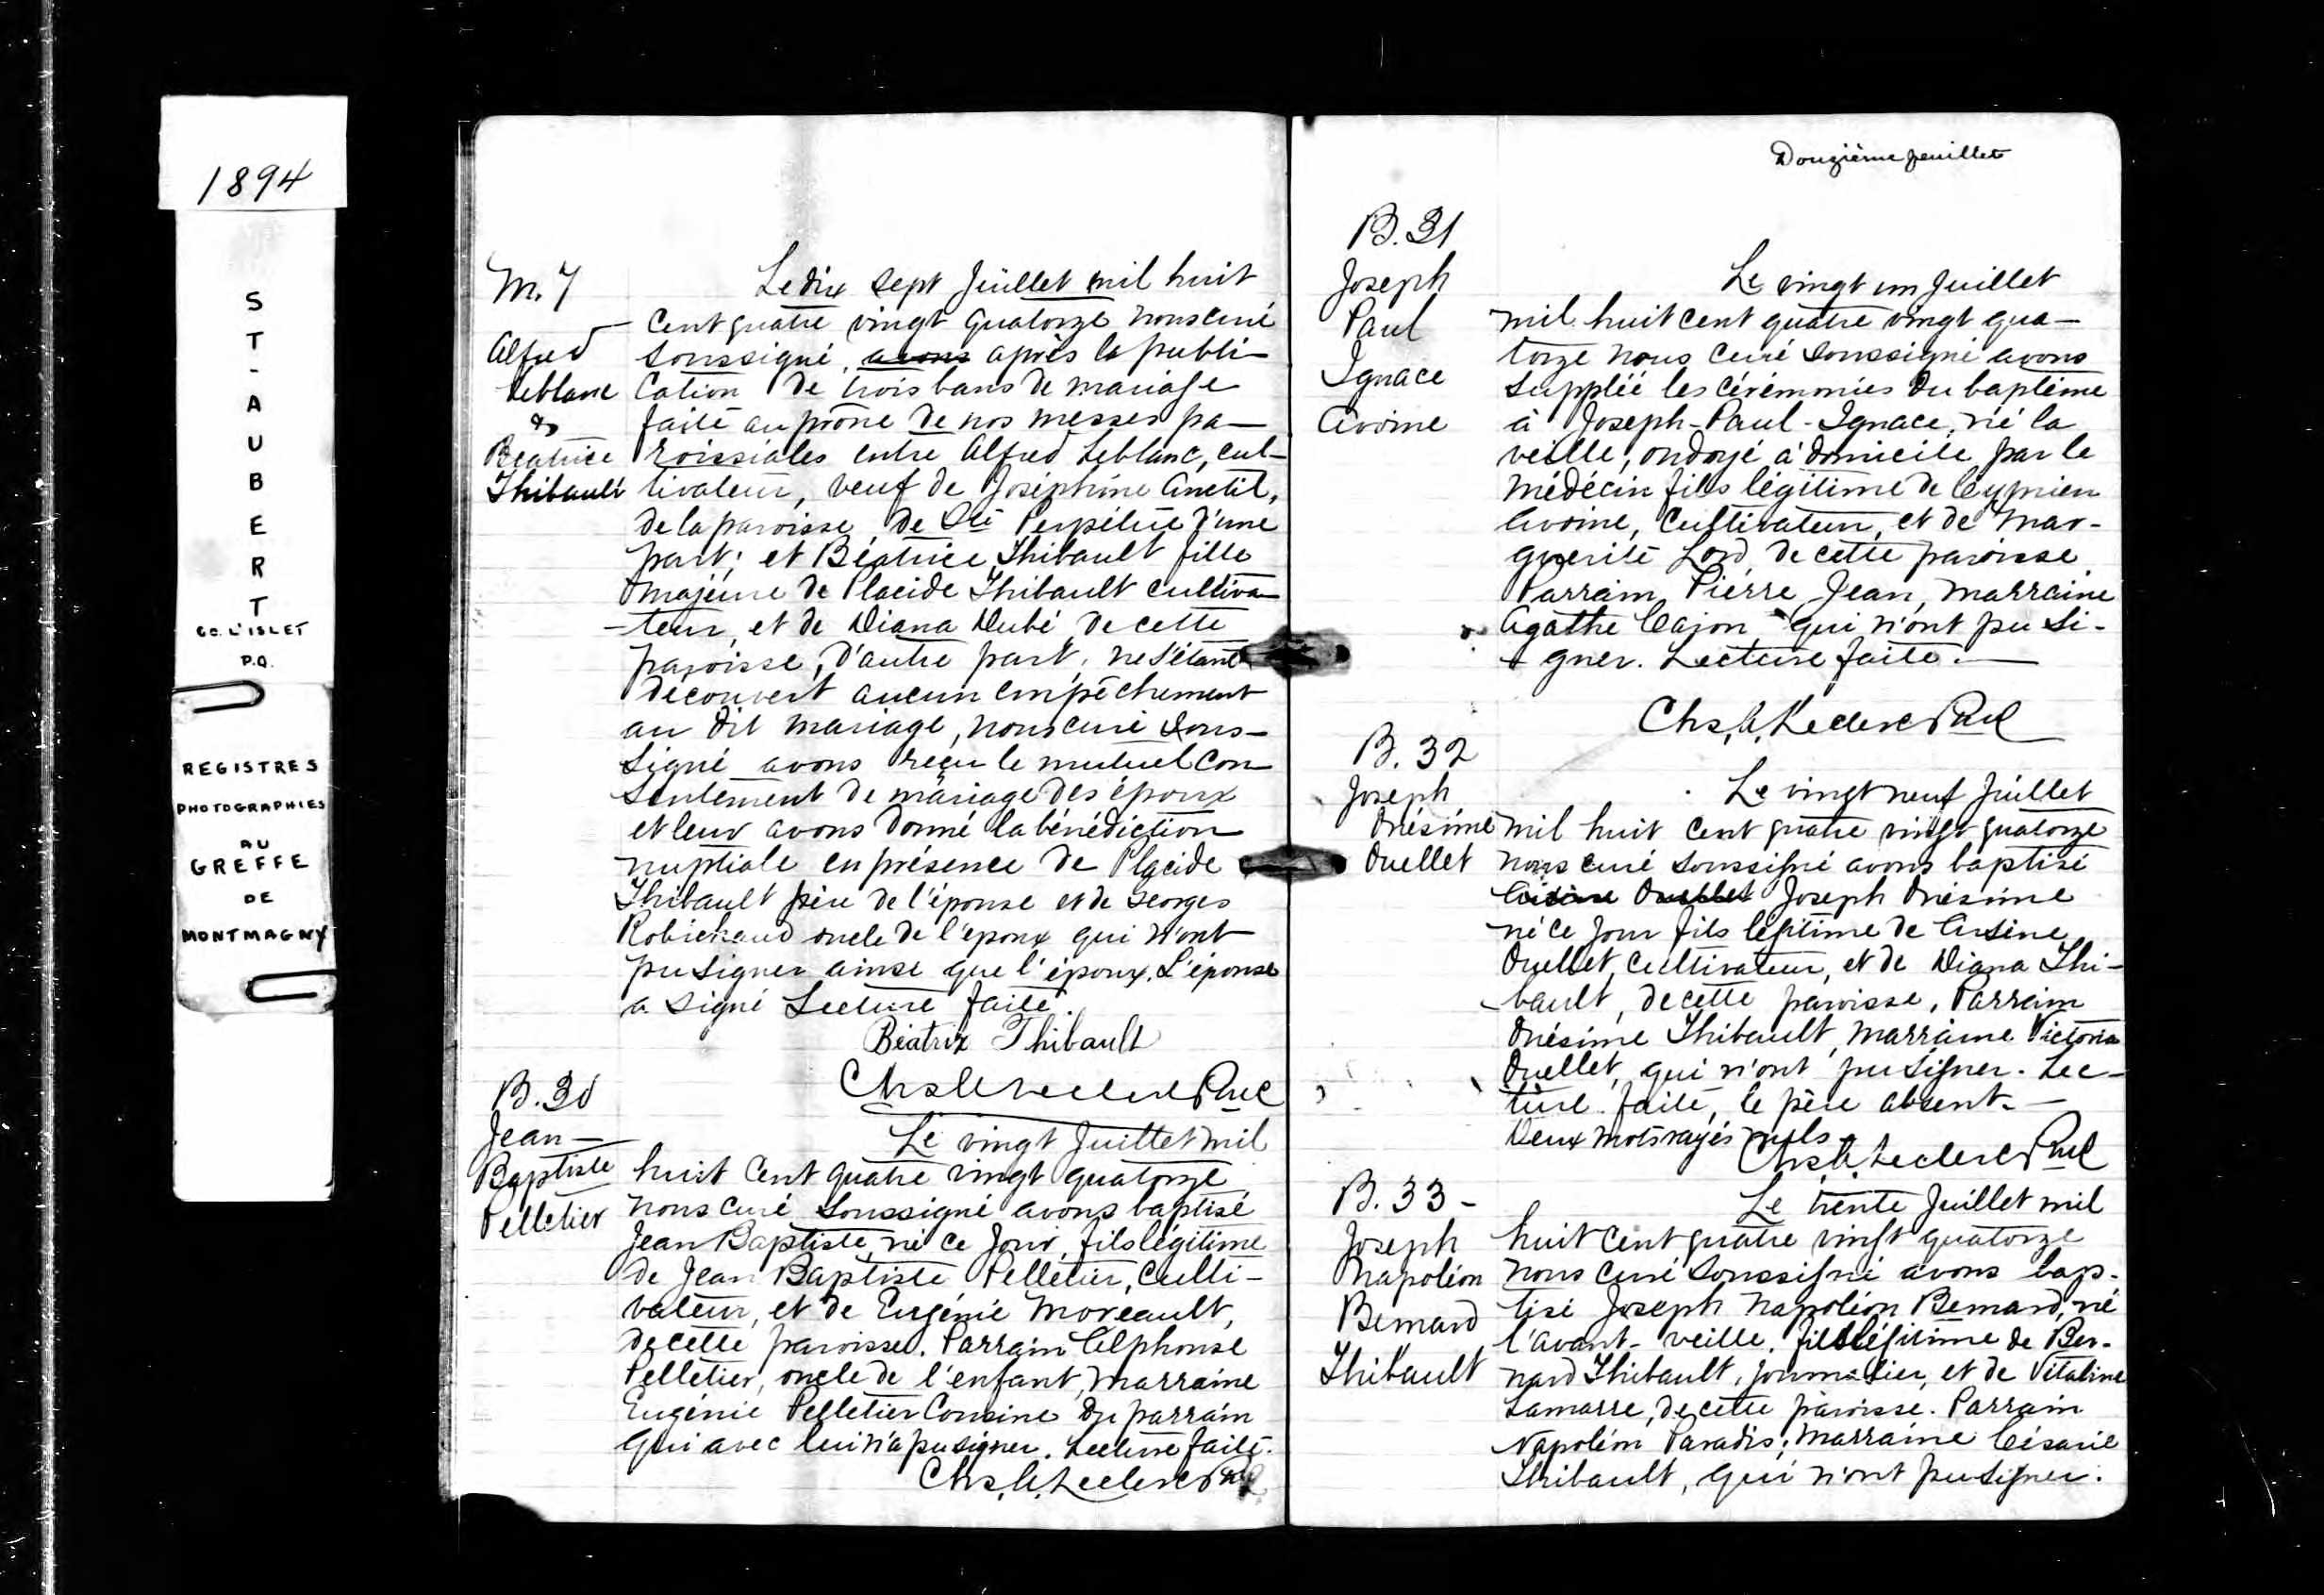 1894
ST-AUBERT
CO. L'ISLET
P.Q.
REGISTRES
PHOTOGRAPHIES
AU
GREFFE
DE
MONTMAGNY
M. 7
Alfred
Leblanc
&
Béatrice
Thibault
Le dix sept Juillet mil huit
cent quatre vingt quatorze nous curé
soussigné, avons après la publi-
cation de trois bans de mariage
faite au prône de nos messes pa-
roissiales entre Alfred Leblanc, cul-
tivateur, veuf de Joséphine Anctil,
de la paroisse de Ste Perpétue d'une
part; et Béatrice Thibault fille
majeure de Placide Thibault cultiva-
-teur, et de Diana Dubé de cette
paroisse, d'autre part, ne s'étant
découvert aucun empêchement
au dit mariage, nous curé sous-
signé avons reçu le mutuel con-
sentement de mariage des époux
et leur avons donné la bénédiction
nuptiale en présence de Placide
Thibault père de l'épouse et de Georges
Robichaud oncle de l'époux qui n'ont
pu signer ainsi que l'époux. L'épouse
a signé Lecture faite.
Béatrix Thibault
Chs. A. Leclerc Ptre
B. 30
Jean-
Baptiste
Pelletier
Le vingt Juillet mil
huit cent quatre vingt quatorze
nous curé soussigné avons baptisé
Jean Baptiste, né ce jour, fils légitime
de Jean Baptiste Pelletier, culti-
vateur, et de Eugénie Moreault,
de cette paroisse. Parrain Alphonse
Pelletier, oncle de l'enfant, marraine
Eugénie Pelletier Cousine du parrain
qui avec lui n'a pu signer. Lecture faite.
Chs. A. Leclerc Ptre
Douzième feuillet
B. 31
Joseph
Paul
Ignace
Avoine
Le vingt un Juillet
mil huit cent quatre vingt qua-
torze nous curé soussigné avons
supplée les cérémonies du baptême
à Joseph-Paul-Ignace, né la
veille, ondoyé à domicile par le
Médécin fils légitime de Cyprien
Avoine, Cultivateur, et de Mar-
guerite Lord, de cette paroisse.
Parrain Pierre Jean, marraine
Agathe Caron, qui n'ont pu si-
gner. Lecture faite.
Chs. A. Leclerc Ptre
B. 32
Joseph
Onésime
Ouellet
Le vingt neuf Juillet
mil huit cent quatre vingt quatorze
nous curé soussigné avons baptisé
Ouellet Joseph Onésime
né ce jour fils légitime de Arsène
Ouellet, cultivateur, et de Diana Thi-
-bault, de cette paroisse, Parrain
Onésime Thibault, marraine Victoria
Ouellet, qui n'ont pu signer. Lec-
ture faite, le père absent.
Deux mots rayés nuls.
Chs. A. Leclerc Ptre
B. 33-
Joseph
Napoléon
Bernard
Thibault
Le trente Juillet mil
huit cent quatre vingt quatorze
nous curé soussigné avons bap-
tisé Joseph Napoléon Bernard, né
l'avant-veille, fils légitime de Ber-
nard Thibault, journalier, et de Vitaline
Lamarre, de cette paroisse. Parrain
Napoléon Paradis; marraine Césarie
Thibault, qui n'ont pu signer.